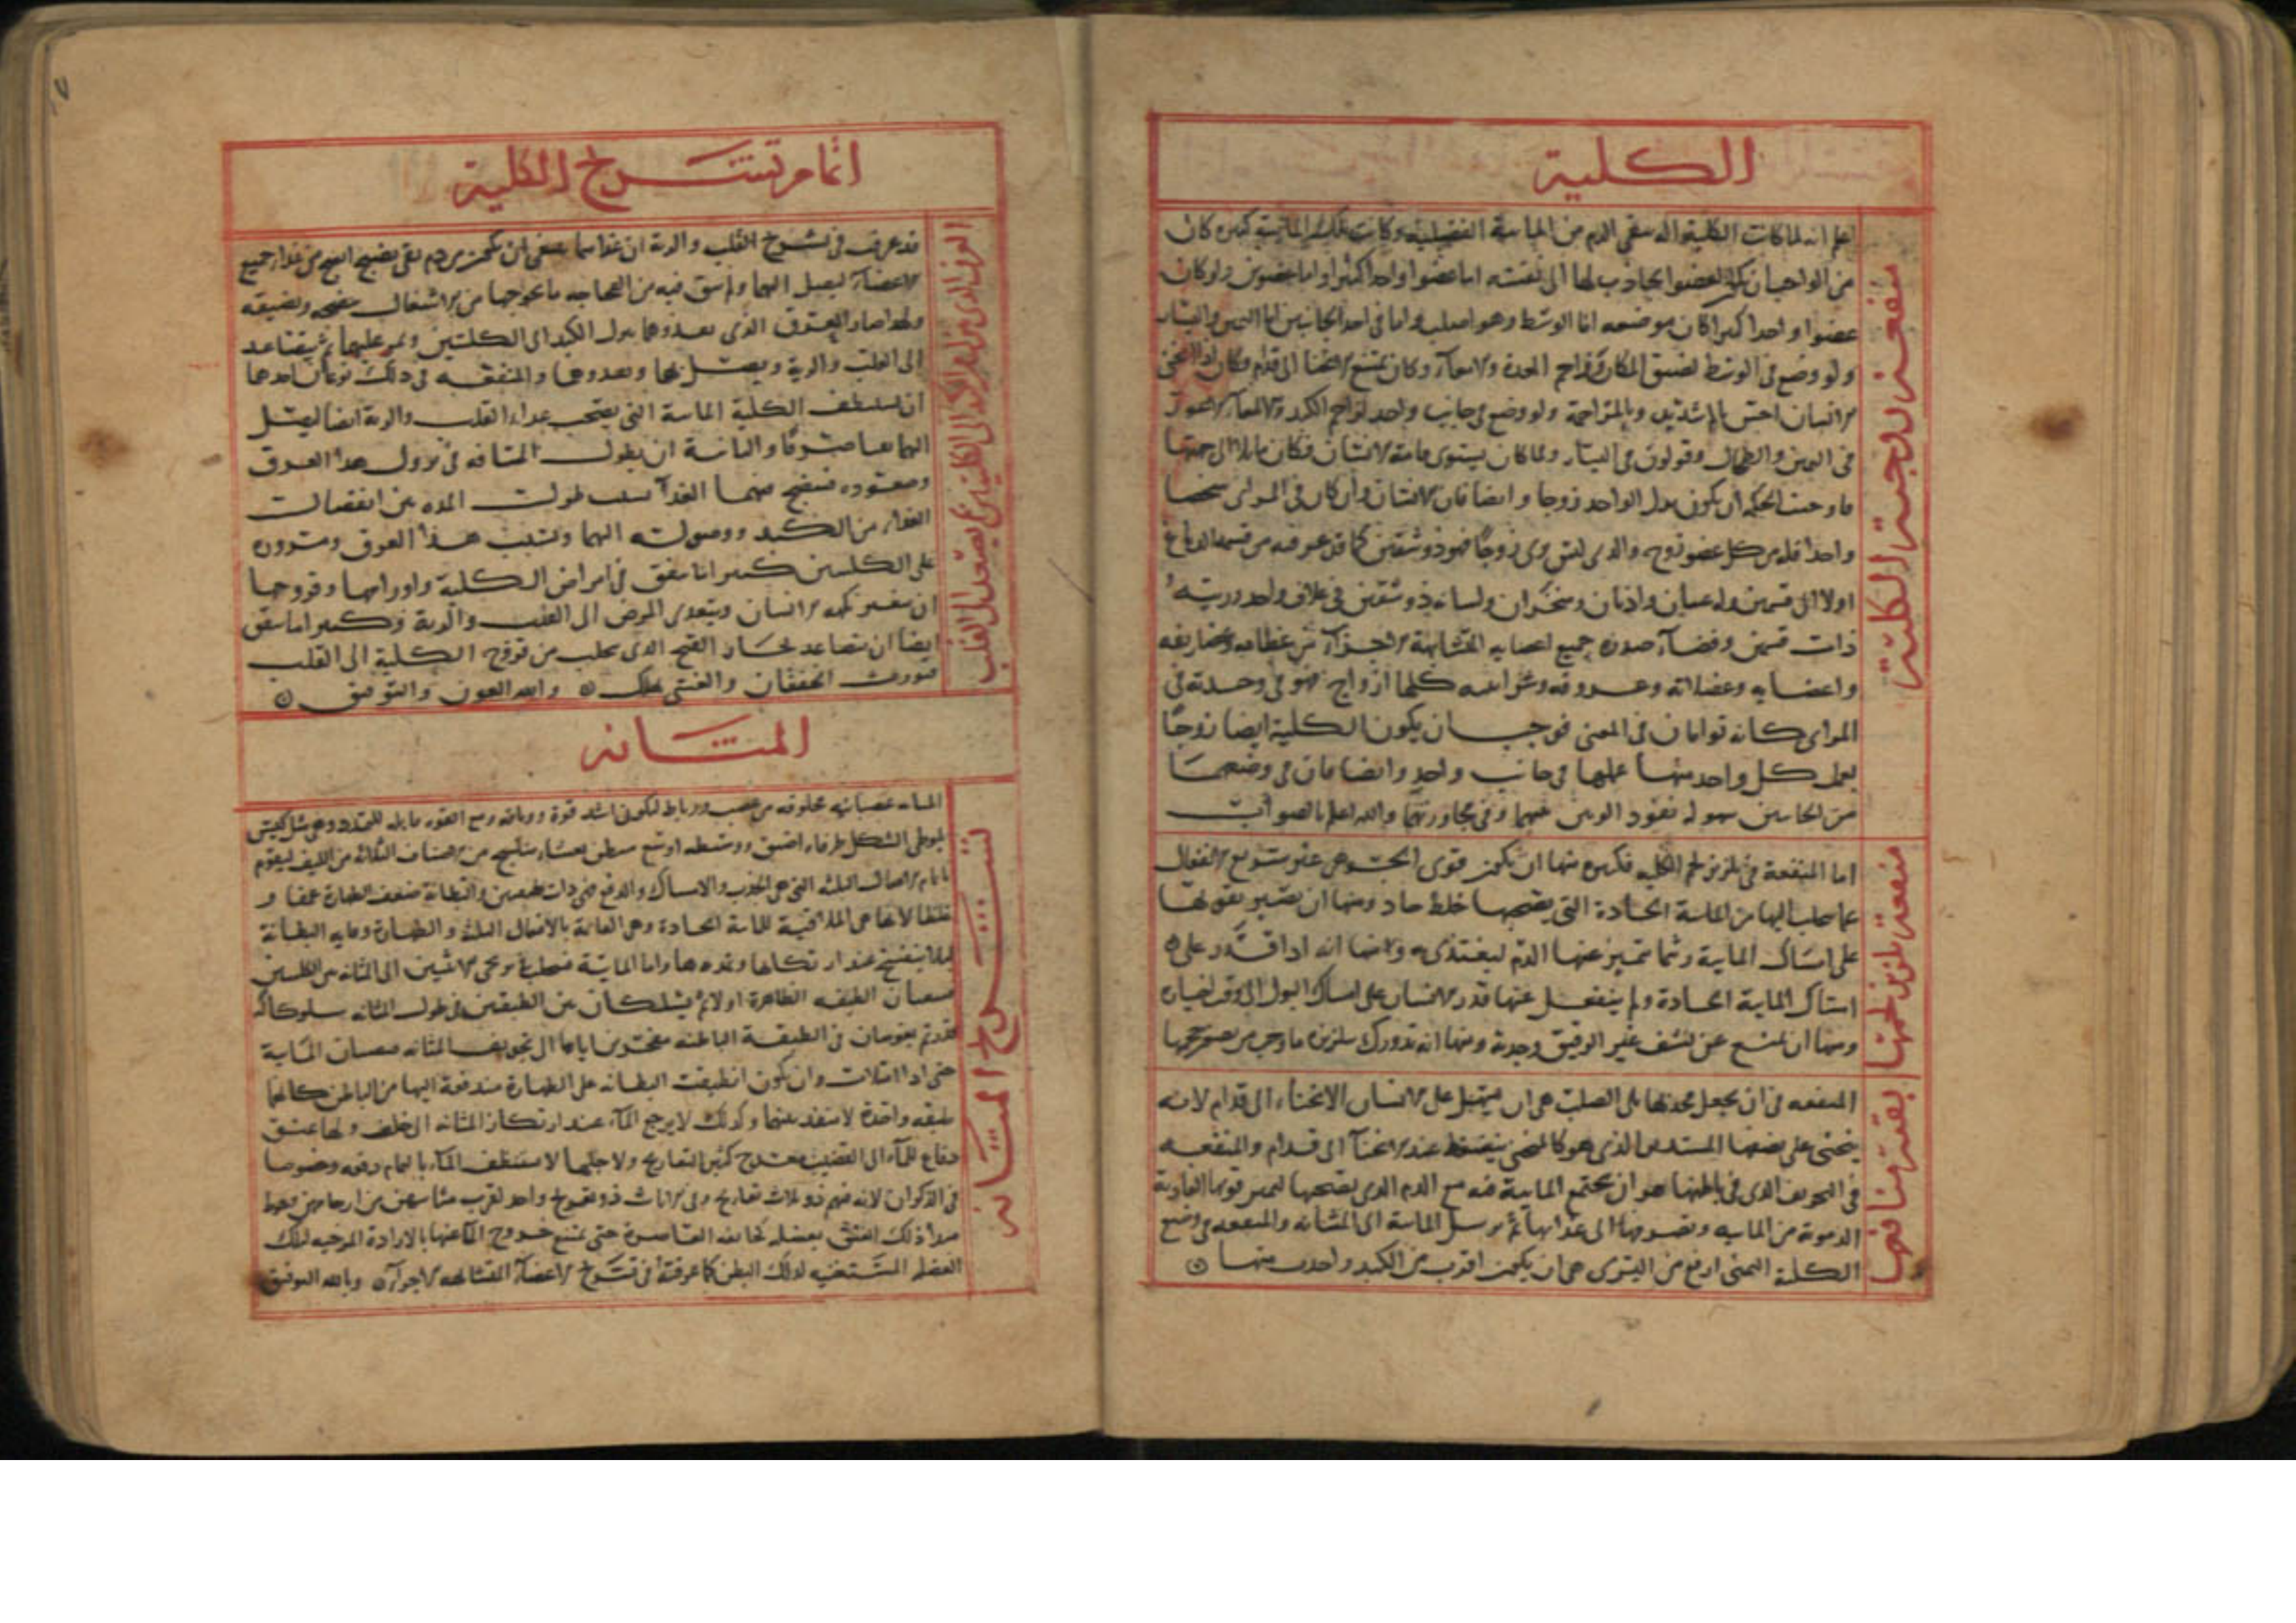 الكلية
منفعة زوجية الكلية
اعلم انه لما كانت الكلية آلة تنقي الدم من المائية الفضلية وكانت تلك المائية كثيرة كان
من الواجب ان يكون العضو الجاذب لها الى نفسه اما عضوا واحدا كبيرا واما عضوين ولو كان
عضوا واحدا كبيرا كان موضعه اما الوسط وهو الصلب واما في احد الجانبين اما اليمين واليسار
ولو وضع في الوسط لضيق المكان وزاحم المعدة والامعاء وكان يمنع الانحنا الى قدام وكان اذا انحنى
الانسان احس وبالمزاحمة ولو وضع في جانب واحد لزاحم الكبد والامعاء الاعور
في اليمين والطحال وقولون في اليسار ولما كان يستوي قامة الانسان فكان مايلا الى جهتها
فاوجبت الحكمة ان يكون بدل الواحد زوجا وايضا فان الانسان وان كان في المرائى شخصا
واحدا فله من كل عضو زوج والذي ليس يرى زوجا فهو ذو شقين كما قد عرفته من قسمة الدماغ
اولا الى قسمين وله عينان واذنان ومنخران ولسانه ذو شقين في غلاف واحد وريته
ذات قسمين وفضاء صدره جميع اعضايه المتشابهة الاجزاء من عظامه وغضاريفه
واعضايه وعضلاته وعروقه وشرايينه كلها ازواج فهو في وحدته في
المرائى كانه توامان في المعنى فوجب ان يكون الكلية ايضا زوجا
يعمل كل واحد منها عملها في جانب واحد وايضا فان في وضعهما
من الجانبين سهولة نفوذ البولين عنهما وفي مجاورتهما والله اعلم بالصواب
منفعة تلزيز لحمها
اما المنفعة في تلزيز لحم الكلية فكثيرة منها ان يكون قوى الجوهر غير سريع الانفعال
عما يجلب اليها من المائية الحادة التي يصحبها خلط حاد ومنها ان يصير بقوتها
على امساك المايية ريثما تتميز عنها الدم ليغتذى به ولانها انه اذا قدر على
امساك المايية الحادة ولم ينفعل عنها قدر الانسان على امساك البول الى وقت اختياره
ومنها ان يمنع عن نشف غير الرقيق وجذبه ومنها انه تدورك بتلزيزه ما وجب من صغر حجمها
بقية منافعها
المنفعة في ان يجعل محدبها يلى الصلب هي ان يسهل على الانسان الانحناء الى قدام لانه
ينحنى على بعضها المستدير الذي هو كالمنحنى ينضغط عند الانحنآ الى قدام والمنفعة
في التجويف الذي في باطنها هو ان يجتمع المايية فيه مع الدم الذي يصحبها لتميز قوتها الغاذية
الدموية من المايية وتصرفها الى غذايها ثم يرسل المايية الى المثانة والمنفعة في وضع
الكلية اليمنى ارفع من اليسرى هي ان يكون اقرب من الكبد واحدب منها
اتمام تشريح الكلية
العرق الذي ينزل من الكبد الى الكليتين ثم يصعد الى القلب
قد عرفت في تشريح القلب والرية ان غذاهما ينبغي ان يكون من دم نقي نضيج انضج من غذاء جميع
الاعضآء ليصل اليهما ولم يبق فيه من الفجاجه ما يحوجهما من الاشتغال بنضجه وتصفيته
ولهذا صار العرق الذي يغذوهما ينزل من الكبد الى الكليتين ويمر عليهما ثم يتصاعد
الى القلب والرية ويتصل بها ويغذوهما والمنفعة في ذلك نوعان احدهما
ان تستنظف الكلية المائية التي يصحب غذاء القلب والرية ايضا ليصل
اليهما صافيا مروقا والثانية ان يطول المسافة في نزول هذا العرق
وصعوده فينضج فيهما الغذآ بسبب طول المدة من انفصال
الغذاء من الكبد ووصوله اليهما وبسبب هذا العرق ومروره
على الكليتين كثيرا ما يتفق في امراض الكلية واورامها وقروحها
ان يتغير نكهة الانسان ويتعدى المرض الى القلب والرية وكثيرا ما يتفق
ايضا ان يتصاعد بخار القيح الذي يجلب من قروح الكلية الى القلب
فيورث الخفقان والغشي المهلك وبالله العون والتوفيق
المثانة
تشريح المثانة
المثانة عصبانية مخلوقة من عصب ورباط ليكون اشد قوة ووثاقة ومع القوة قابلة للتمدد وهي مثل كيس
بلوطى الشكل طرفاه اضيق ووسطه اوسع مبطن بغشاء منتسج من اصناف الثلاثة من الليف ليقوم
باتمام الافعال الثلثة التي هي الجذب والامساك والدفع فهي ذات طبقتين والبطانة ضعف الظهارة عمقا و
غلظا لانها هي الملاقية للمائية الحادة وهي القائمة بالافعال الثلثة والظهارة وقاية البطانة
ليلا ينفسخ عند ارتكازها وتمددها واما المائية فيجلب في مجرى الاثنين الى المثانة من الكليتين
فيصبان الطبقة الظاهرة اولا ثم يسلكان بين الطبقتين في طول المثانة سلوكا له
قدر ثم يغوصان في الطبقة الباطنة مفجرين اياها الى تجويف المثانة يصبان المايية
حتى اذا امتلات وان يكون انطبقت البطانة على الظهارة مندفعة اليها من الباطن كانهما
طبقة واحدة لا منفذ بينهما وكذلك لا يرجع المآء عند ارتكاز المثانة الى خلف ولها عنق
دفاع للمآء الى القضيب معرج كثير التعاريج ولاجلها لا يستنظف المآء بالتمام دفعة وخصوصا
في الذكران لانه فيهم ذو ثلاث تعاريج وفي الاناث ذو تعريج واحد لقرب مثانتهن من ارحامهن ويحيط
مبدأ ذلك العنق بعضلة كالخانقة العاصرة حتى يمنع خروج المآء عنها الا بالارادة المرخية لتلك
العضلة المستعينة بعضل البطن كما عرفته في تشريح الاعضآء المتشابهة الاجزآء وبالله التوفيق